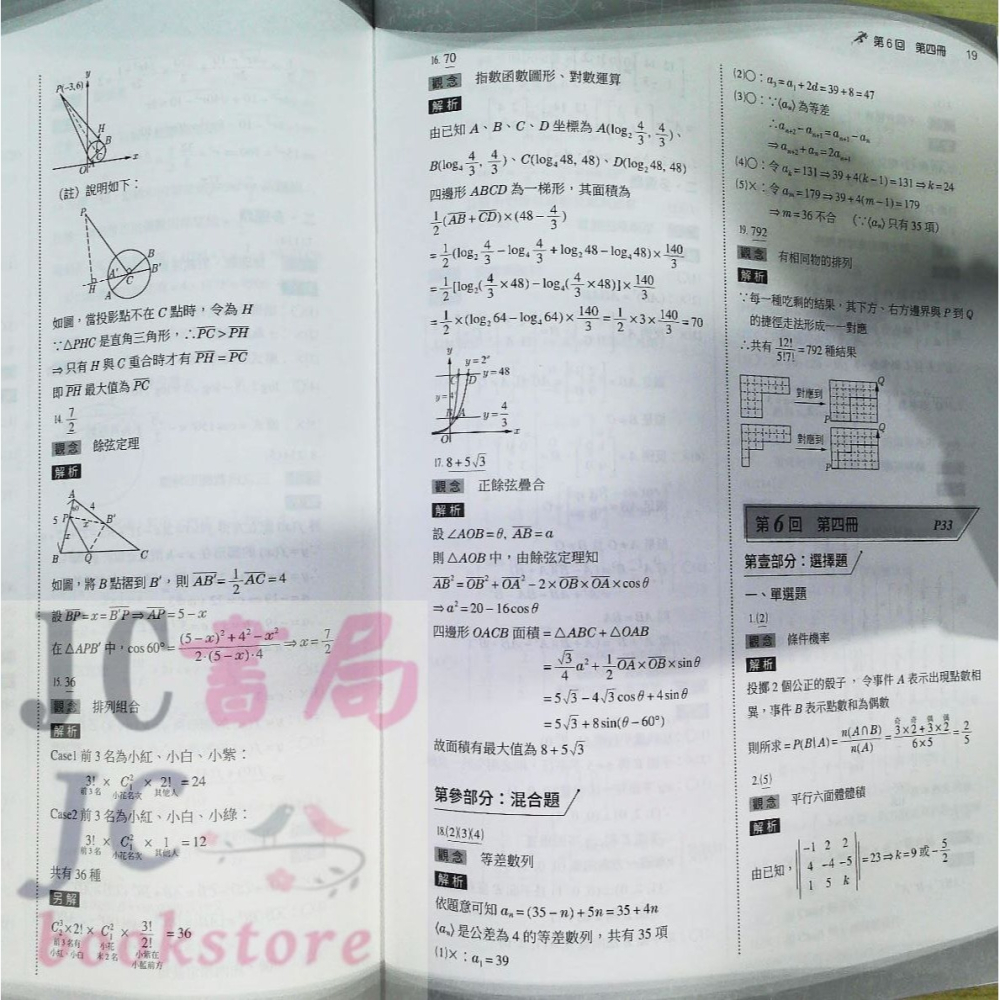 第6回 第四冊 19
P(-3,6)
y
H
B
C
A
O
x
(註)說明如下:
P
B
A'
B'
C
H
A
如圖,當投影點不在 C 點時,令為 H
∵△PHC 是直角三角形,∴PC > PH
⇒只有 H 與 C 重合時才有 PH = PC
即 PH 最大值為 PC
14. 7/2
觀念 餘弦定理
解析
A
60°
4
5
P
x
B'
x
B
Q
C
如圖,將 B 點摺到 B',則 AB' = 1/2 AC = 4
設 BP = x = B'P ⇒ AP = 5 - x
在 △APB' 中,cos 60° = ((5-x)² + 4² - x²)/(2·(5-x)·4) ⇒ x = 7/2
15. 36
觀念 排列組合
解析
Case1 前 3 名為小紅、小白、小紫:
3! × C²₁ × 2! = 24
前3名 小花名次 其他人
Case2 前 3 名為小紅、小白、小綠:
3! × C²₁ × 1 = 12
前3名 小花名次 其他人
共有 36 種
另解
C³₁×2! × C²₁ × 3!/2! = 36
前3名有 小花 小紫在
小紅、小白 末2名 小藍前方
16. 70
觀念 指數函數圖形、對數運算
解析
由已知 A、B、C、D 坐標為 A(log₂ 4/3, 4/3)、
B(log₄ 4/3, 4/3)、C(log₄ 48, 48)、D(log₂ 48, 48)
四邊形 ABCD 為一梯形,其面積為
1/2 (AB + CD) × (48 - 4/3)
= 1/2 (log₂ 4/3 - log₄ 4/3 + log₂ 48 - log₄ 48) × 140/3
= 1/2 [log₂(4/3 × 48) - log₄(4/3 × 48)] × 140/3
= 1/2 × (log₂ 64 - log₄ 64) × 140/3 = 1/2 × 3 × 140/3 = 70
y
y = 2ˣ
C
D
y = 48
y = 4ˣ
B
A
y = 4/3
O
x
17. 8 + 5√3
觀念 正餘弦疊合
解析
設 ∠AOB = θ, AB = a
則 △AOB 中,由餘弦定理知
AB² = OB² + OA² - 2 × OB × OA × cos θ
⇒ a² = 20 - 16 cos θ
四邊形 OACB 面積 = △ABC + △OAB
= √3/4 a² + 1/2 OA × OB × sin θ
= 5√3 - 4√3 cos θ + 4 sin θ
= 5√3 + 8 sin(θ - 60°)
故面積有最大值為 8 + 5√3
第參部分:混合題
18. (2)(3)(4)
觀念 等差數列
解析
依題意可知 aₙ = (35 - n) + 5n = 35 + 4n
⟨aₙ⟩ 是公差為 4 的等差數列,共有 35 項
(1)×:a₁ = 39
(2)○:a₃ = a₁ + 2d = 39 + 8 = 47
(3)○:∵⟨aₙ⟩ 為等差
∴aₙ₊₂ - aₙ₊₁ = aₙ₊₁ - aₙ
⇒ aₙ₊₂ + aₙ = 2aₙ₊₁
(4)○:令 aₖ = 131 ⇒ 39 + 4(k - 1) = 131 ⇒ k = 24
(5)×:令 aₘ = 179 ⇒ 39 + 4(m - 1) = 179
⇒ m = 36 不合 (∵⟨aₙ⟩ 只有 35 項)
19. 792
觀念 有相同物的排列
解析
∵每一種吃剩的結果,其下方、右方邊界與 P 到 Q
的捷徑走法形成一一對應
∴共有 12!/5!7! = 792 種結果
對應到
Q
P
對應到
Q
P
第 6 回 第四冊 P33
第壹部分:選擇題
一、單選題
1. (2)
觀念 條件機率
解析
投擲 2 個公正的骰子,令事件 A 表示出現點數相
異,事件 B 表示點數和為偶數
奇 奇 偶 偶
則所求 = P(B|A) = n(A∩B)/n(A) = (3×2+3×2)/(6×5) = 2/5
2. (5)
觀念 平行六面體體積
解析
-1 2 2
由已知, | 4 -4 -5 | = 23 ⇒ k = 9 或 -5/2
1 5 k
JC 書局
JC
bookstore